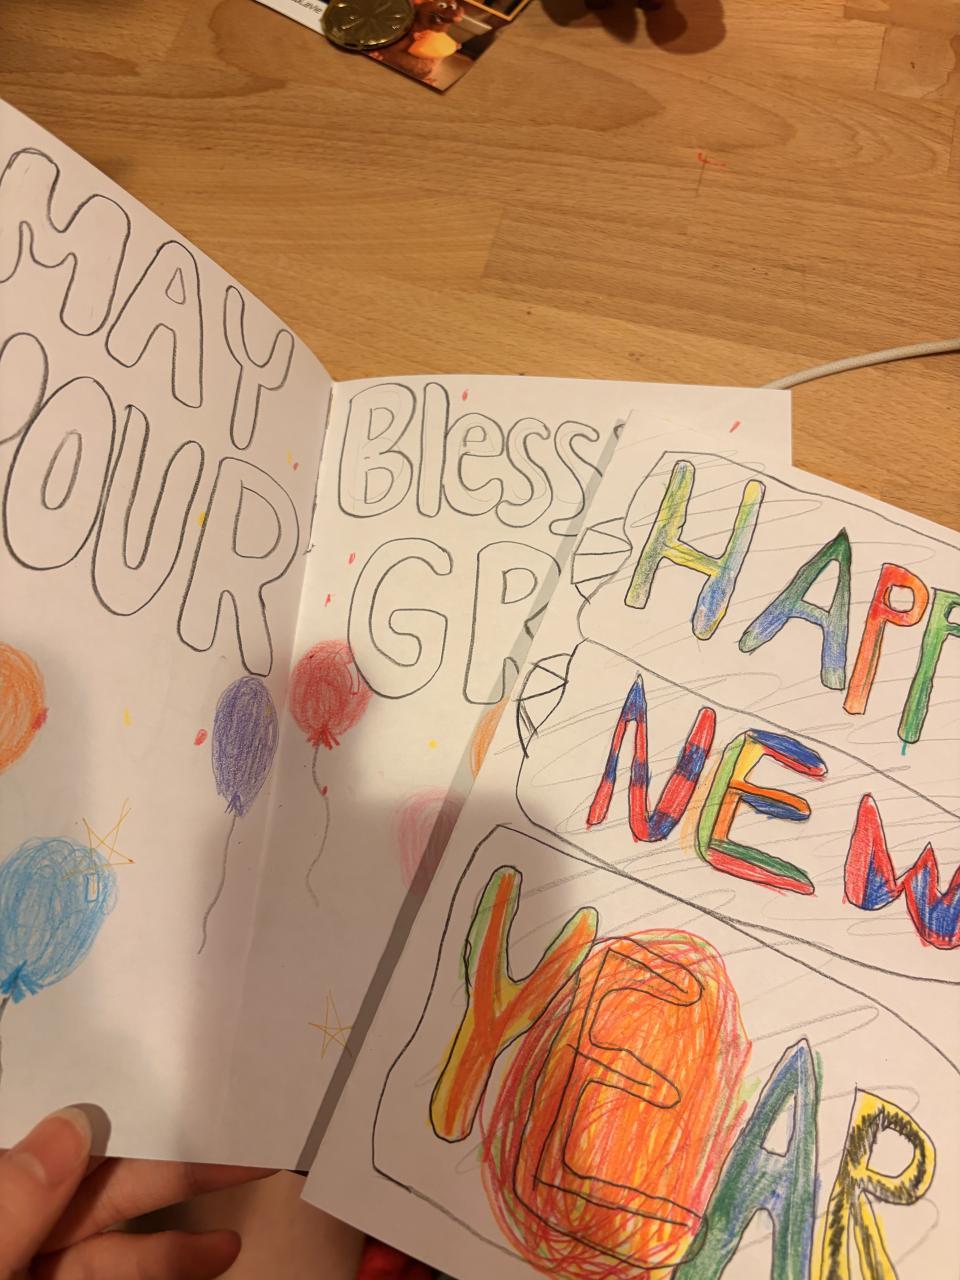 MAY
YOUR
Bless
GR
HAPP
NEW
YEAR